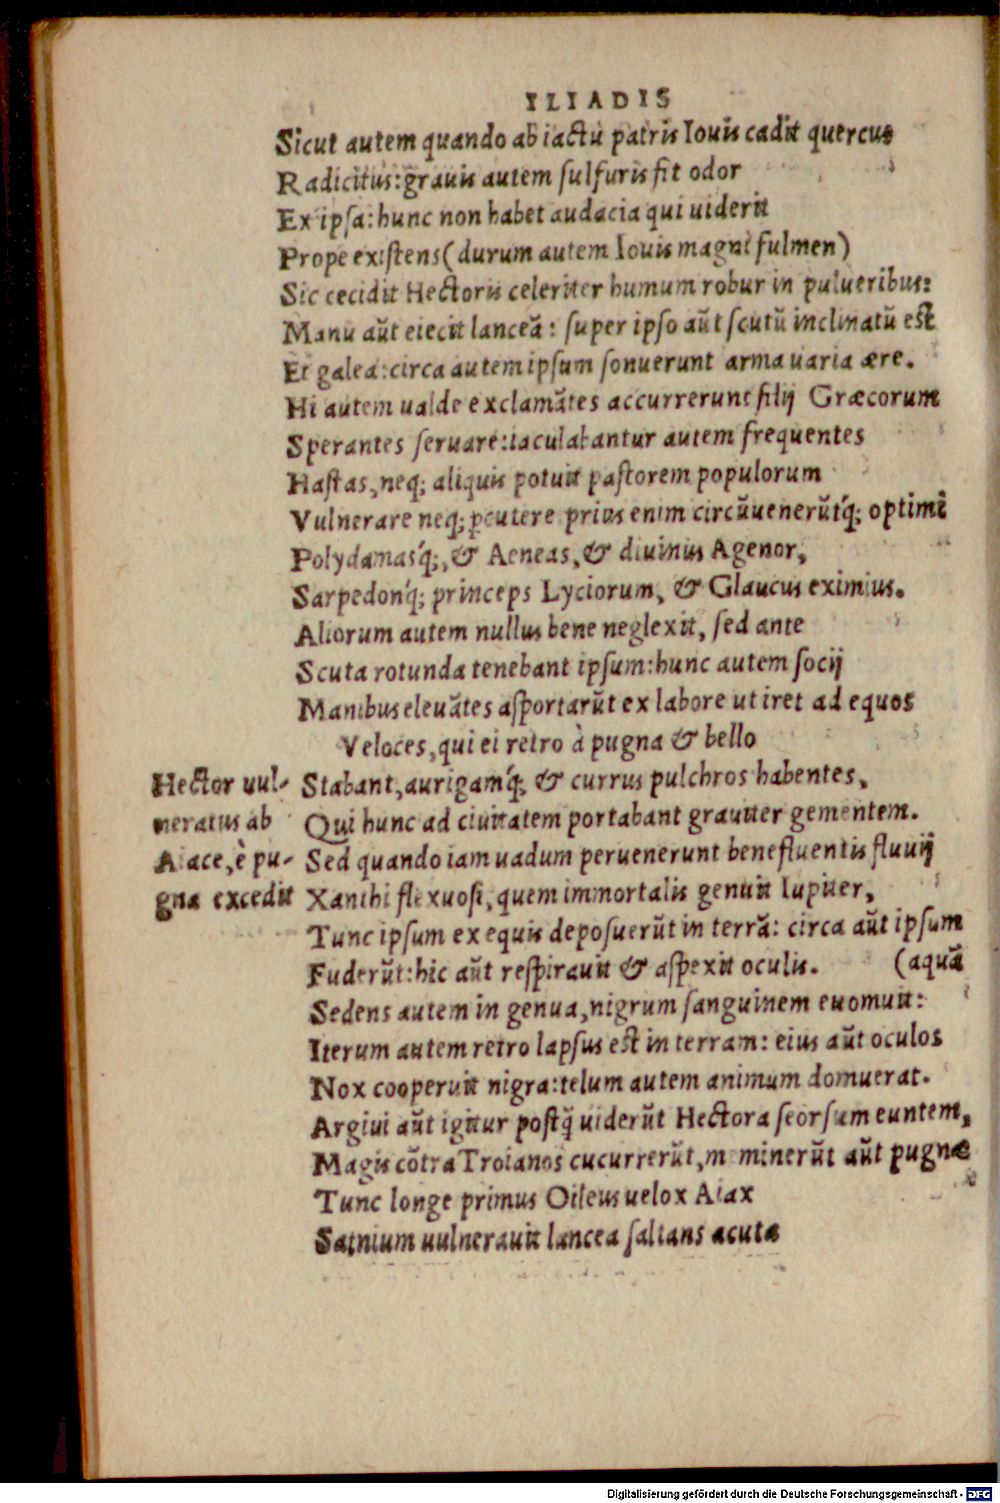 ILIADIS
Sicut autem quando ab iactu patris Iouis cadit quercus
Radicitus: grauis autem sulfuris fit odor
Ex ipsa: hunc non habet audacia qui uiderit
Prope existens (durum autem Iouis magni fulmen)
Sic cecidit Hectoris celeriter humum robur in pulueribus:
Manu aūt eiecit lanceā: super ipso aūt scutū inclinatū est
Et galea: circa autem ipsum sonuerunt arma uaria ære.
Hi autem ualde exclamātes accurrerunt filij Græcorum
Sperantes seruare: iaculabantur autem frequentes
Hastas, neq; aliquis potuit pastorem populorum
Vulnerare neq; pcutere prius enim circūuenerūtq́; optimi
Polydamasq́;, & Aeneas, & diuinus Agenor,
Sarpedonq́; princeps Lyciorum, & Glaucus eximius.
Aliorum autem nullus bene neglexit, sed ante
Scuta rotunda tenebant ipsum: hunc autem socij
Manibus eleuātes asportarūt ex labore ut iret ad equos
Veloces, qui ei retro à pugna & bello
Stabant, aurigamq́; & currus pulchros habentes,
Qui hunc ad ciuitatem portabant grauiter gementem.
Sed quando iam uadum peruenerunt benefluentis fluuij
Xanthi flexuosi, quem immortalis genuit Iupiter,
Tunc ipsum ex equis deposuerūt in terrā: circa aūt ipsum
Fuderūt: hic aūt respirauit & aspexit oculis. (aquā
Sedens autem in genua, nigrum sanguinem euomuit:
Iterum autem retro lapsus est in terram: eius aūt oculos
Nox cooperuit nigra: telum autem animum domuerat.
Argiui aūt igitur postq̄ uiderūt Hectora seorsum euntem,
Magis cōtra Troianos cucurrerūt, meminerūt aūt pugnæ
Tunc longe primus Oileus uelox Aiax
Satnium uulnerauit lancea saltans acuta
Hector uul-
neratus ab
Aiace, è pu-
gna excedit
Digitalisierung gefördert durch die Deutsche Forschungsgemeinschaft - DFG